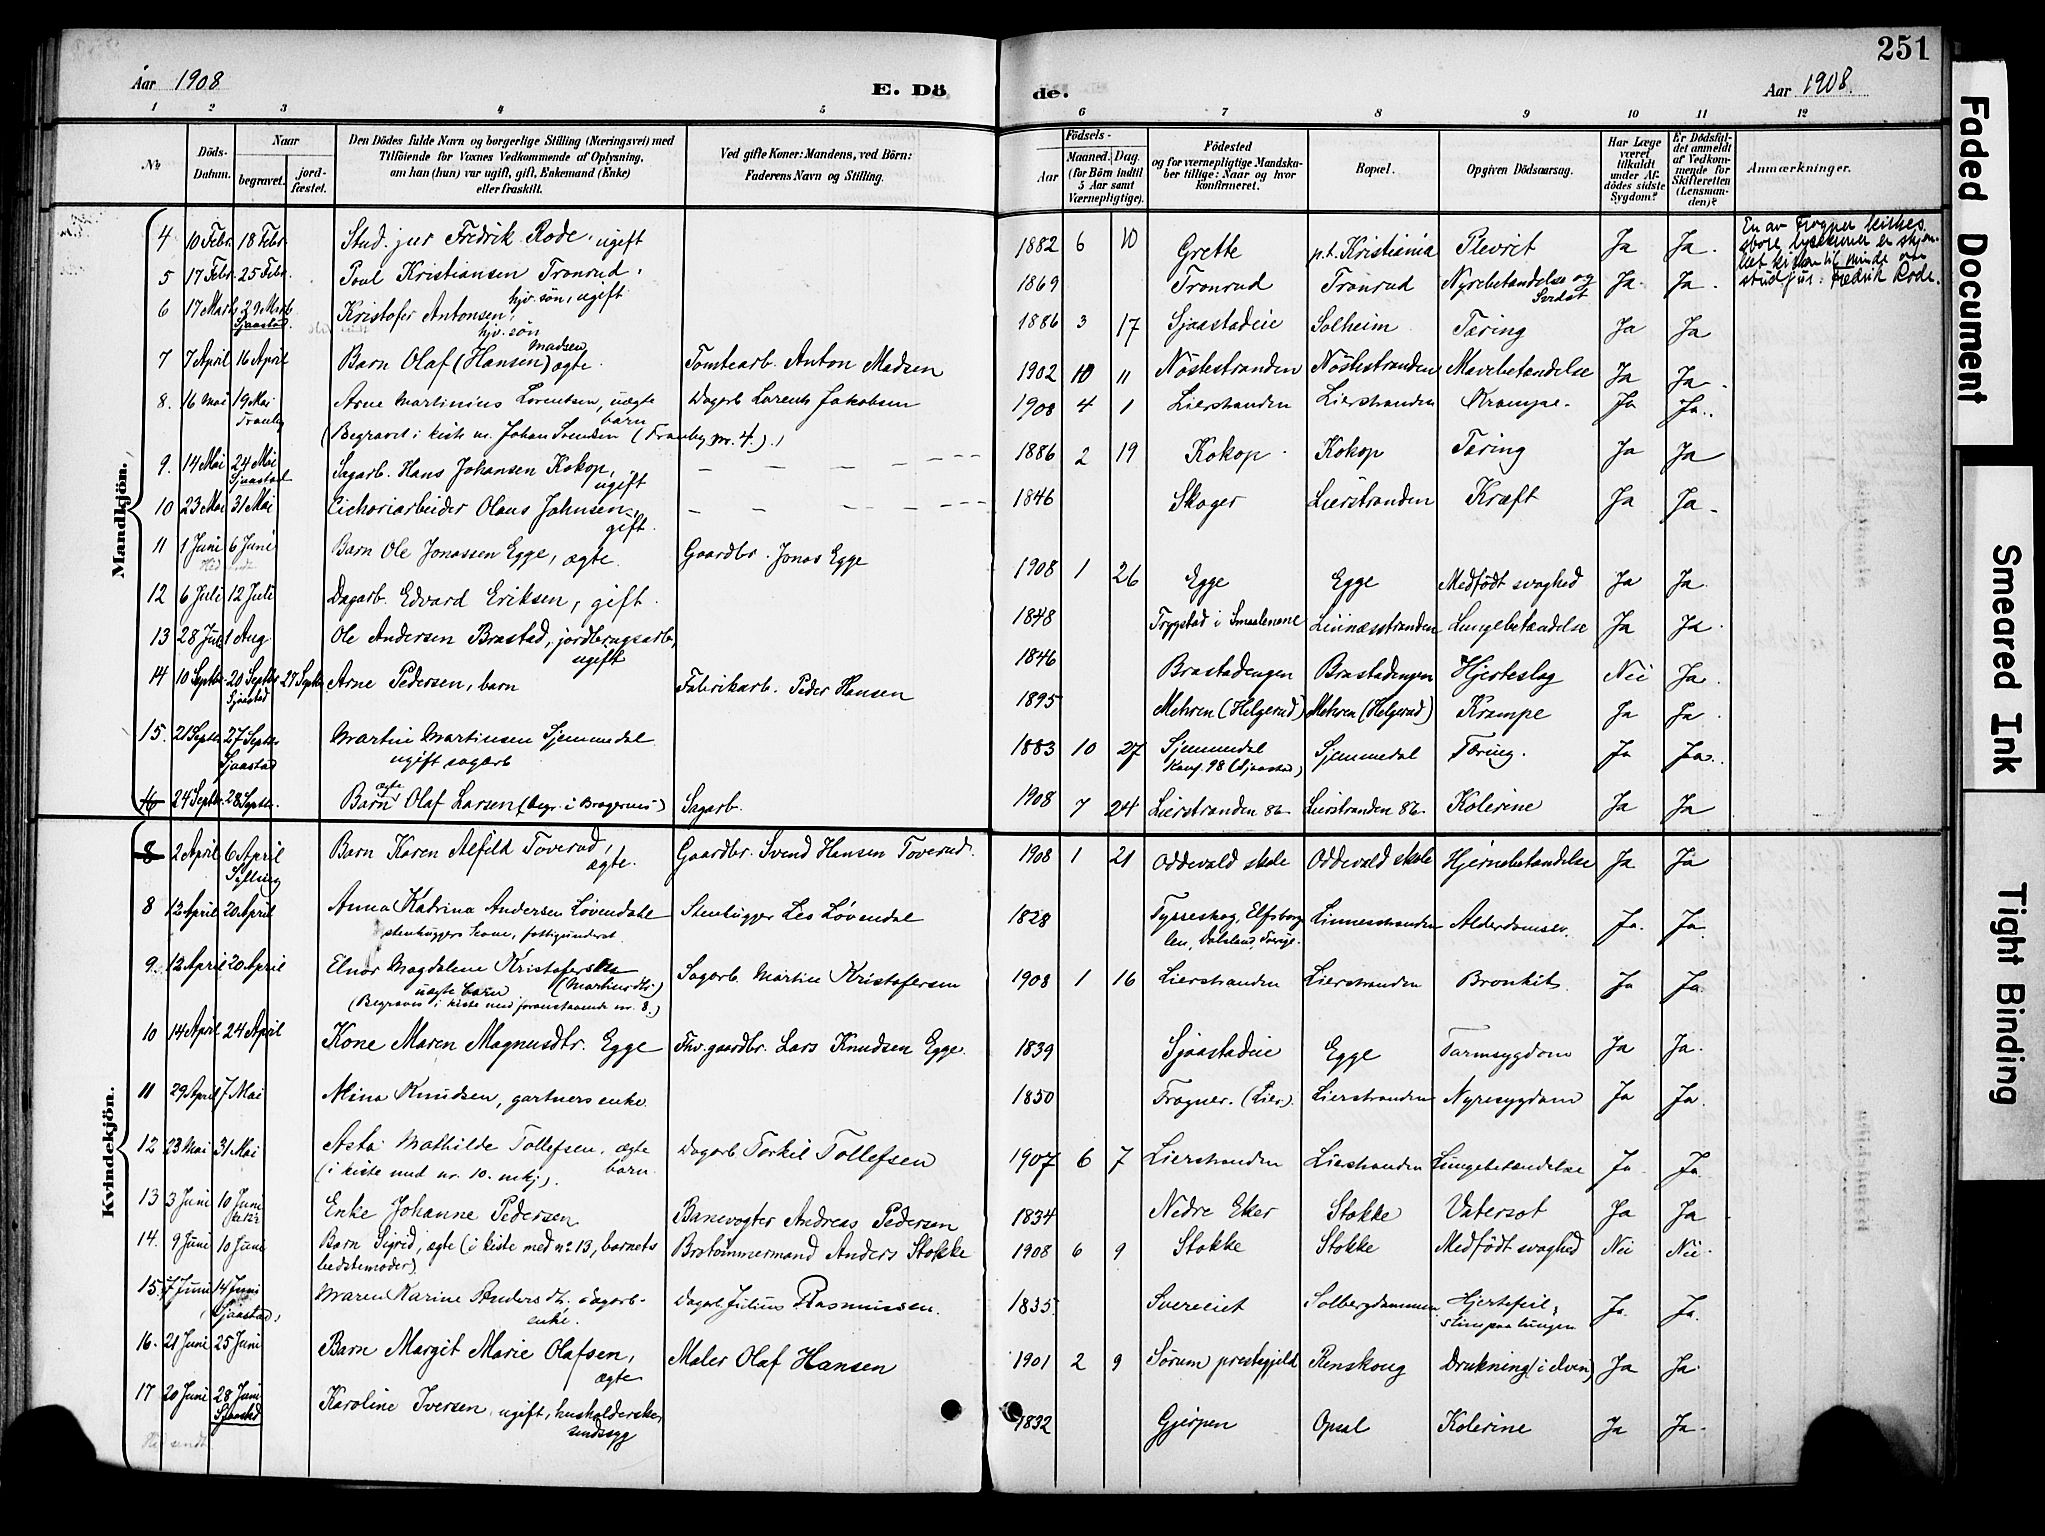 251
Aar 1908
E. Dö
de.
Aar 1908.
1 2 3 4 5 6 7 8 9 10 11 12
No
Döds-Datum.
Naar
begravet.
jordfæstet.
Den Dödes fulde Navn og borgerlige Stilling (Næringsvei) med
Tilföiende for Voxnes Vedkommende af Oplysning,
om han (hun) var ugift, gift, Enkemand (Enke)
eller fraskilt.
Ved gifte Koner: Mandens, ved Börn:
Faderens Navn og Stilling.
Födsels-
Aar
Maaned. Dag.
(for Börn indtil
5 Aar samt
Værnepligtige).
Födested
og for værnepligtige Mandska-
ber tillige: Naar og hvor
konfirmeret.
Bopæl.
Opgiven Dödsaarsag.
Har Læge
været
tilkaldt
under Af-
dödes sidste
Sygdom?
Er Dödsfal-
det anmeldt
af Vedkom-
mende for
Skifteretten
(Lensman-
den)?
Anmærkninger.
Mandkjön.
4 10 Febr. 18 Febr. Stud. jur Fredrik Rode, ugift 1882 6 10 Grette p.t. Kristiania Plevrit Ja Ja.
En av Frogner kirkes
store lysekroner er skjæn-
ket kirken til minde om
stud jur: Fredrik Rode.
5 17 Febr. 25 Febr. Poul Kristiansen Tronrud, 1869 Tronrud Tronrud Nyrebetændelse og Ja. Ja.
hjv. søn, ugift
6 17 Marts 29 Marts Kristofer Antonsen, 1886 3 17 Sjaastadeie Solheim Tæring Ja Ja
Sjaastad. hjv. søn
Madsen
7 7 April 16 April Barn Olaf (Hansen) ægte. Tomtearb. Anton Madsen 1902 10 11 Nöstestranden Nöstestranden Mavebetændelse Ja Ja.
8. 16 Mai 19 Mai Arne Martinius Lorentsen, uægte Dagarb Lorents Jakobsen 1908 4 1 Lierstranden Lierstranden Krampe. Ja Ja.
Tranby barn
(Begravet i kiste m. Johan Svendsen (Tranby nr. 4.).)
9. 14 Mai 24 Mai Sagarb. Hans Johansen Kokop, 1886 2 19 Kokop Kokop Tæring Ja Ja
Sjaastad ugift
10 23 Mai 31 Mai Cichoriarbeider Olaus Johnsen, 1846 Skoger Lierstranden Kræft Ja Ja.
gift.
11 1 Juni 6 Juni Barn Ole Jonassen Egge, ægte. Gaardbr. Jonas Egge 1908 1 26 Egge Egge Medfödt svaghed Ja Ja.
12 6 Juli 12 Juli Dagarb. Edvard Eriksen, gift. 1848 Trygstad i Smaalenene Linnesstranden Lungebetændelse Ja Ja.
13 28 Juli 1 Aug Ole Andersen Brastad, jordbrugsarb, 1846 Brastadengen Brastadengen Hjerteslag Nei Ja.
ugift
14 10 Septbr. 20 Septbr 27 Septbr Arne Pedersen, barn Fabrikarb. Peder Hansen 1895 Mehren (Helgerud) Mehren (Helgerud) Krampe Ja Ja.
Sjaastad
15. 21 Septbr. 27 Septbr Martin Martinsen Sjemmedal 1883 10 27 Sjemmedal Sjemmedal Tæring. Ja Ja.
Sjaastad ugift sagarb Konf. 98 (Sjaastad)
ægte
16 24 Septbr. 28 Septbr. Barn Olaf Larsen (begr. i Bragernes) Sagarb. 1908 7 24 Lierstranden 86 Lierstranden 86 Kolerine Ja Ja
Kvindekjön.
8 2 April 6 April Barn Karen Alfild Toverud, Gaardbr. Svend Hansen Toverud. 1908 1 21 Oddevald skole Oddevald skole Hjernebetændelse Ja Ja
Sylling ægte.
8 12 April 20 April Anna Katrina Andersen Lövendale Stenhugger Les Lövendal 1828 Linnesstranden Alderdomssv. Ja. Ja
stenhuggers kone, fattigunderst.
9. 12 April 20 April Elnor Magdalene Kristofersen Sagarb. Martin Kristofersen 1908 1 16 Lierstranden Lierstranden Bronkit Ja Ja.
uægte barn (Martinsdtr.)
(Begravet i kiste med foranstaaende nr. 8.)
10 14 April 24 April Kone Maren Magnusdtr. Egge Fhv. gaardbr. Lars Knudsen Egge. 1839 Sjaastadeie Egge Tarmsygdom Ja Ja.
11 29 April 7 Mai Mina Knudsen, gartners enke. 1850 Frogner. (Lier). Lierstranden Nyresygdom Ja Ja.
12 23 Mai 31 Mai Asta Mathilde Tollefsen, ægte Dagarb Torkil Tollefsen 1907 6 7 Lierstranden Lierstranden Lungebetændelse Ja. Ja.
(i kiste med nr. 10. mkj). barn.
13 3 Juni 10 Juni Enke Johanne Pedersen Banevogter Andreas Pedersen 1834 Nedre Eker Stokke Vatersot Ja Ja
14. 9 Juni 10 Juni Barn Sigrid, ægte (i kiste med no 13, barnets Brotömmermand Anders Stokke 1908 6 9 Stokke Stokke Medfödt svaghed Nei Nei.
bedstemoder)
15. 7 Juni 14 Juni Maren Karine Andersdtr. dagarb- Dagarb Julius Rasmussen. 1835. Svereiet Solbergdammen. Hjertefeil, Ja. Ja.
Sjaastad, enke. slim paa lungen
16. 21 Juni 25 Juni Barn Margit Marie Olafsen, Maler Olaf Hansen 1901 2 9 Sörum prestegjeld Renskoug Drukning (i elven) Ja Ja.
ægte
17 20 Juni 28 Juni Karoline Iversen, ugift, husholderske, 1832 Gjerpen Opsal Kolerine Ja Ja.
Sjaastad sindssyg
Faded Document
Smeared Ink
Tight Binding